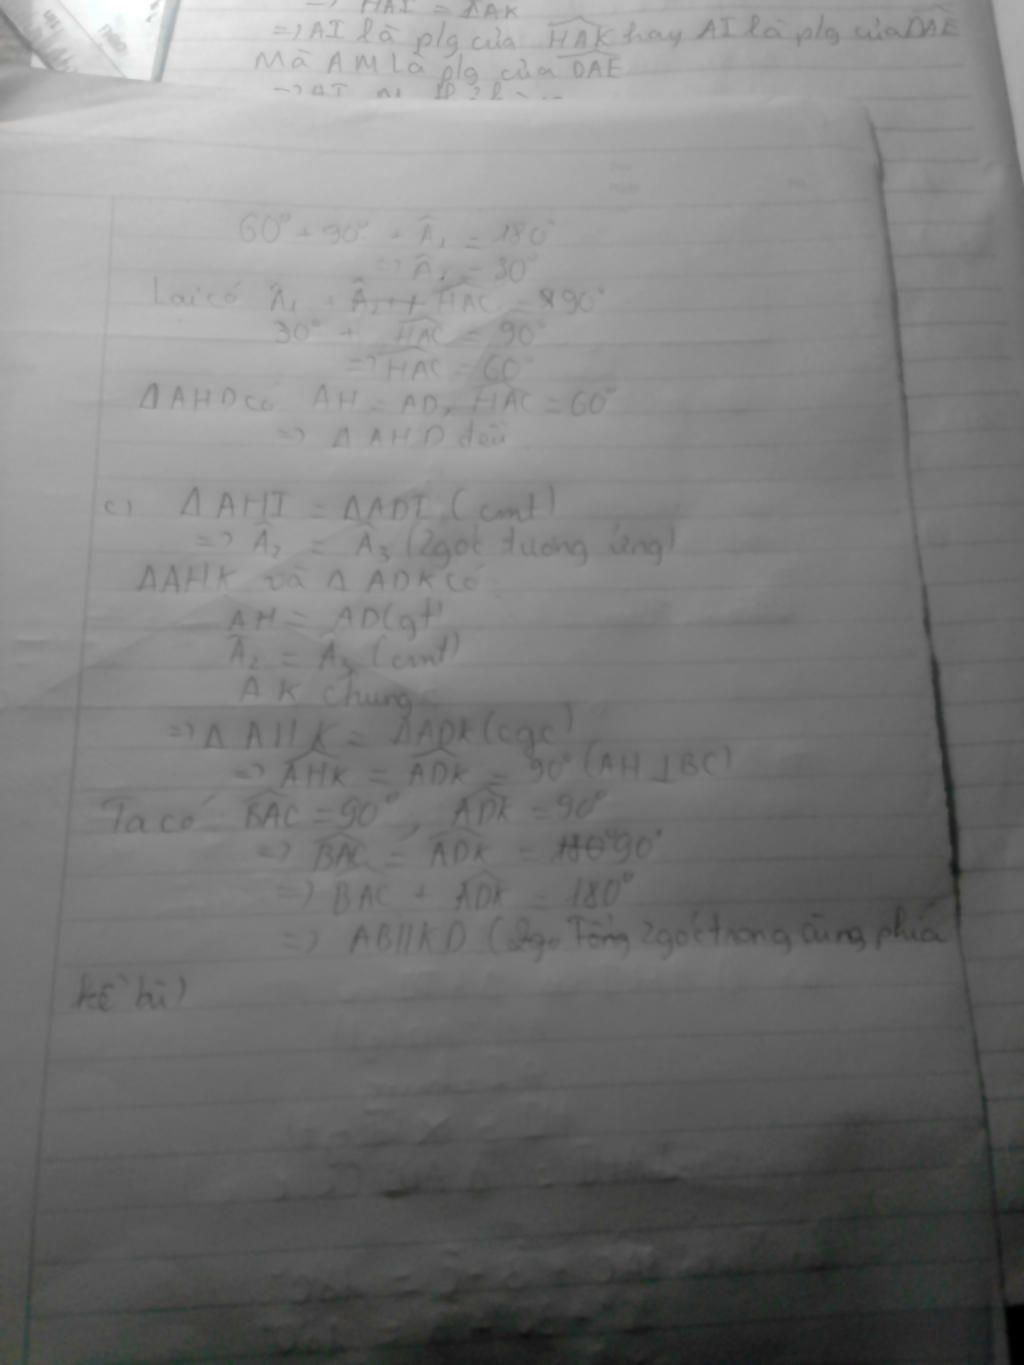 => HAI = IAK
=> AI là p/g của HAK hay AI là p/g của DAE
Mà AM là p/g của DAE
60° + 90° + Â₁ = 180°
=> Â₁ = 30°
Lại có Â₁ + HAC = 90°
30° + HAC = 90°
=> HAC = 60°
Δ AHD có AH = AD, HAC = 60°
=> Δ AHD đều
c) Δ AHI = ΔADI (cmt)
=> Â₂ = Â₃ (2góc tương ứng)
ΔAHK và Δ ADK có
AH = AD(gt)
Â₂ = Â₃ (cmt)
AK chung
=> Δ AHK = ΔADK (cgc)
=> AHK = ADK = 90° (AH ⊥ BC)
Ta có BAC = 90°, ADK = 90°
=> BAC = ADK = 90°
=> BAC + ADK = 180°
=> AB//KD (Tổng 2góc trong cùng phía
kề bù)